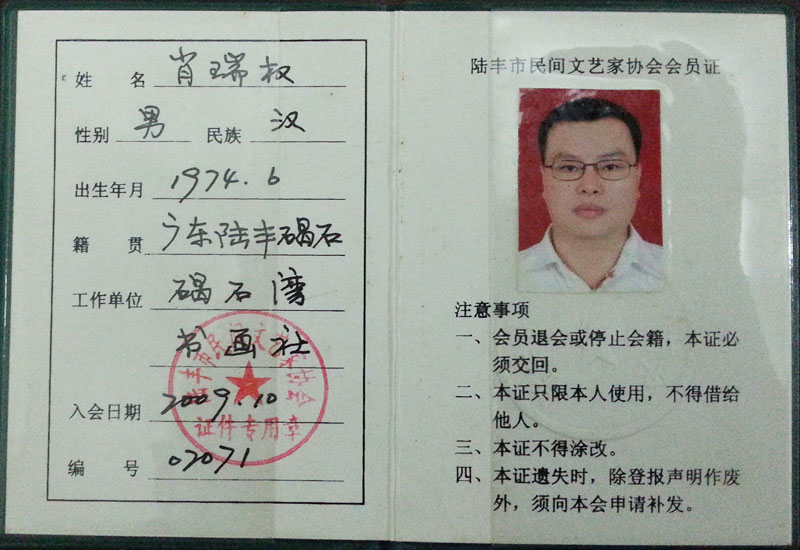 姓 名 肖瑞权
性别 男 民族 汉
出生年月 1974.6
籍 贯 广东陆丰碣石
工作单位 碣石湾
书画社
入会日期 2009.10
编 号 02071
陆丰市民间文艺家协会
证件专用章
陆丰市民间文艺家协会会员证
注意事项
一、会员退会或停止会籍，本证必
须交回。
二、本证只限本人使用，不得借给
他人。
三、本证不得涂改。
四、本证遗失时，除登报声明作废
外，须向本会申请补发。